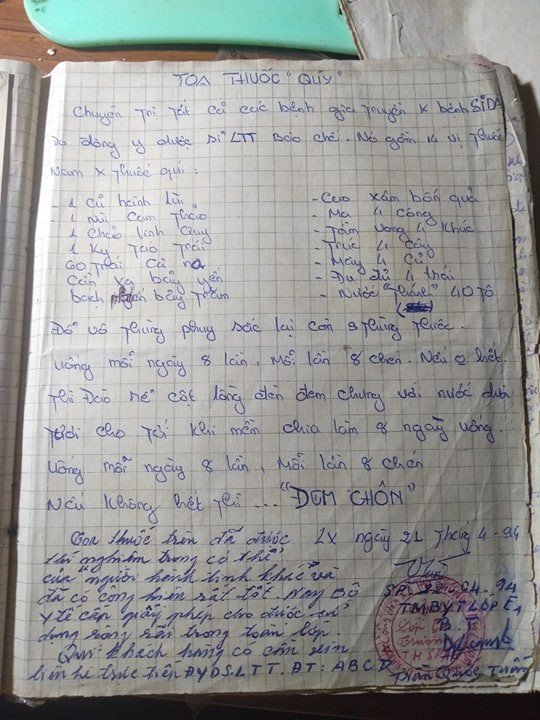 TOA THUỐC "QUÝ"
Chuyên trị tất cả các bệnh gia truyền x bệnh SiDA
Do đông y dược sĩ LTT Bào chế. Nó gồm 14 vị thuốc
Nam x thuốc quí :
- 1 củ hành lùi
- 1 nùi Cam thảo
- 1 chảo linh
- 1 ký Táo Trái
60 Trái Cà na
Cân xạ bảy yến
bạch bảy trăm
- Cao xâm bốn quả
- Ma 4 công
- Tầm vong 4 khúc
- Trúc 4 cây
- Mây 4 củ
- Đu đủ 4 trái
- Nước "Thánh" 40 tô
Đổ vô thùng phuy sắc lại còn 8 thùng thiếc.
uống mỗi ngày 8 lần, Mỗi lần 8 chén. Nếu o hết
thì Đào rể cột lồng đèn đem chưng với nước
tươi cho tới khi mền chia làm 8 ngày uống.
uống mỗi ngày 8 lần, Mỗi lần 8 chén
Nếu không hết thì ... "ĐEM CHÔN"
Toa thuốc trên đã được
thí nghiệm trong cơ thể
của người hành tinh khác và
đã có công hiệu rất tốt. Nay Bộ
y tế cấp giấy phép cho được sử
dụng rộng rãi trong toàn lớp
Quí khách hàng có cần xin
liên hệ trực tiếp AYDS.LTT. ĐT: ABCD
LX ngày 21 Tháng 4-94
04-94
Trần Quốc Tuấn